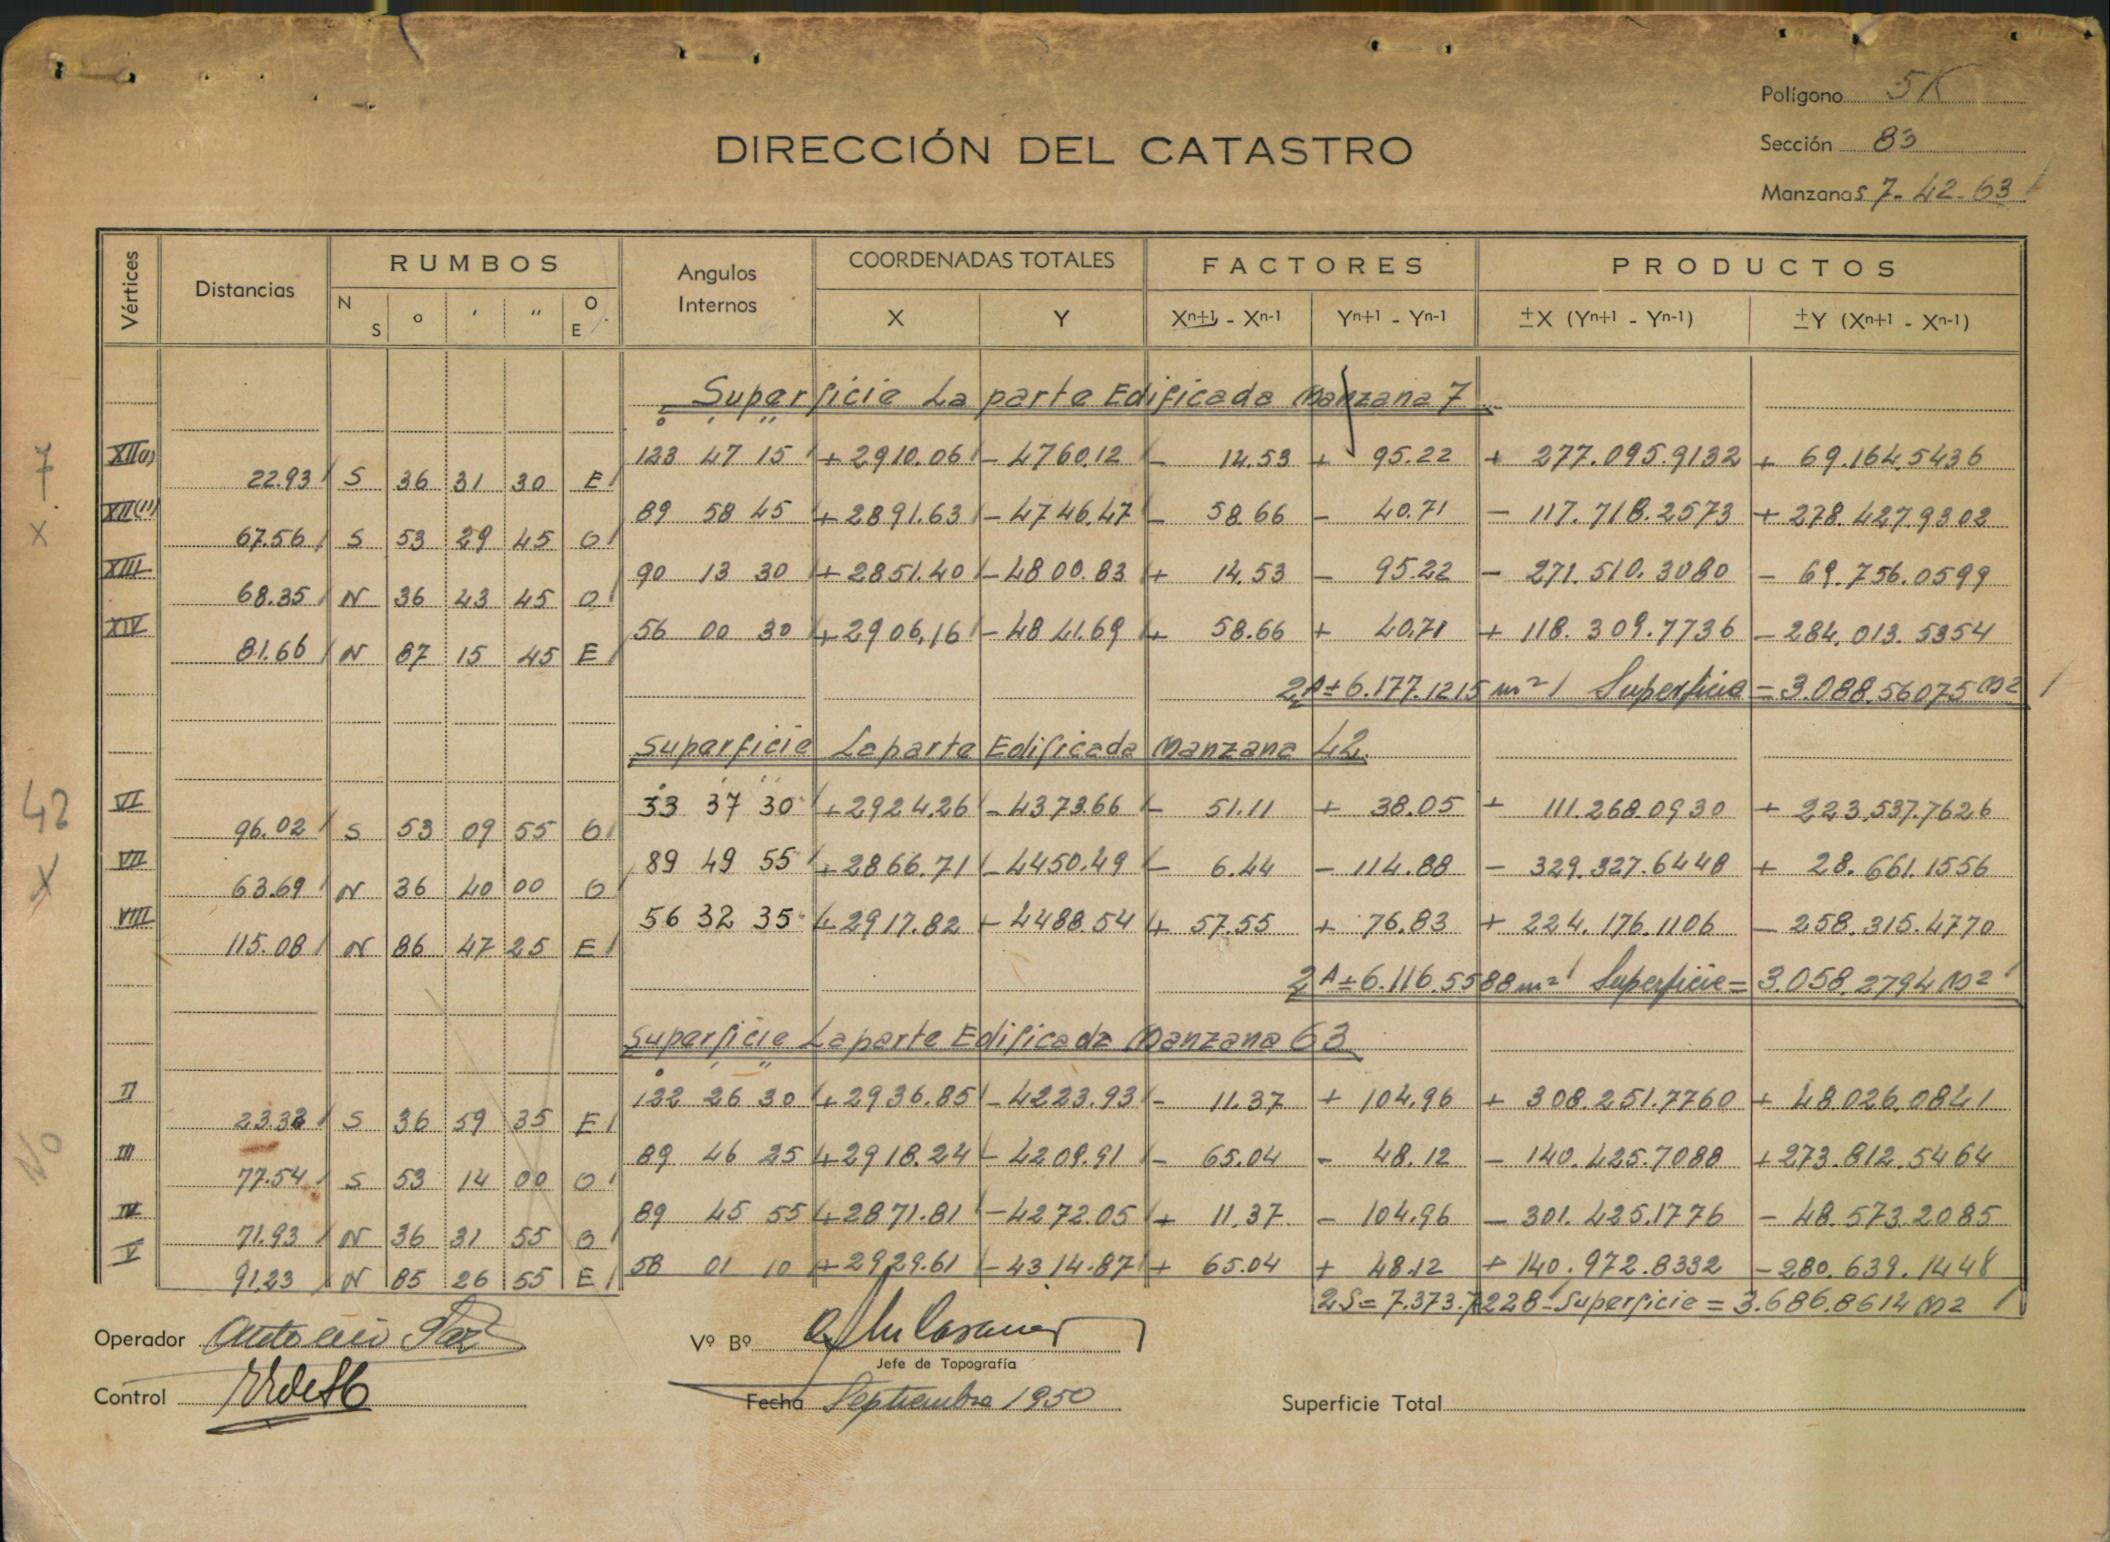 Polígono 5K
DIRECCIÓN DEL CATASTRO
Sección 83
Manzanas 7-42-63
Vértices Distancias RUMBOS Angulos Internos COORDENADAS TOTALES FACTORES PRODUCTOS
N S ° ' " O E X Y Xn+1 - Xn-1 Yn+1 - Yn-1 ±X (Yn+1 - Yn-1) ±Y (Xn+1 - Xn-1)
Superficie La parte Edificada Manzana 7
° ' "
7
XII(1) 123 47 15 +2910.06 -4760.12 - 14.53 + 95.22 + 277.095.9132 + 69.164.5436
22.93 S 36 31 30 E
XII(11) 89 58 45 +2891.63 -4746.47 - 58.66 - 40.71 - 117.718.2573 + 278.427.9302
x
67.56 S 53 29 45 O
XIII 90 13 30 +2851.40 -4800.83 + 14.53 - 95.22 - 271.510.3080 - 69.756.0599
68.35 N 36 43 45 O
XIV 56 00 30 +2906.16 -4841.69 + 58.66 + 40.71 + 118.309.7736 - 284.013.5354
81.66 N 87 15 45 E
2A± 6.177.1215 m² Superficie = 3.088.56075 m2
Superficie La parte Edificada Manzana 42
42
VI 33 37 30 +2924.26 -4373.66 - 51.11 + 38.05 + 111.268.0930 + 223.537.7626
96.02 S 53 09 55 O
VII 89 49 55 +2866.71 -4450.49 - 6.44 - 114.88 - 329.327.6448 + 28.661.1556
X
63.69 N 36 40 00 O
VIII 56 32 35 +2917.82 -4488.54 + 57.55 + 76.83 + 224.176.1106 - 258.315.4770
115.08 N 86 47 25 E
2A± 6.116.5588 m² Superficie = 3.058.2794 m2
Superficie La parte Edificada Manzana 63
° ' "
II 122 26 30 +2936.85 -4223.93 - 11.37 + 104.96 + 308.251.7760 + 48.026.0841
23.33 S 36 59 35 E
No
III 89 46 25 +2918.24 -4209.91 - 65.04 - 48.12 - 140.425.7088 +273.812.5464
77.54 S 53 14 00 O
IV 89 45 55 +2871.81 -4272.05 + 11.37 - 104.96 - 301.425.1776 - 48.573.2085
71.93 N 36 31 55 O
V 58 01 10 +2929.61 -4314.87 + 65.04 + 48.12 + 140.972.8332 -280.639.1448
91.23 N 85 26 55 E
2S = 7.373.7228 Superficie = 3.686.8614 m2
Operador Antonio Paz
Vº Bº
Jefe de Topografía
Control
Fecha Septiembre 1950
Superficie Total